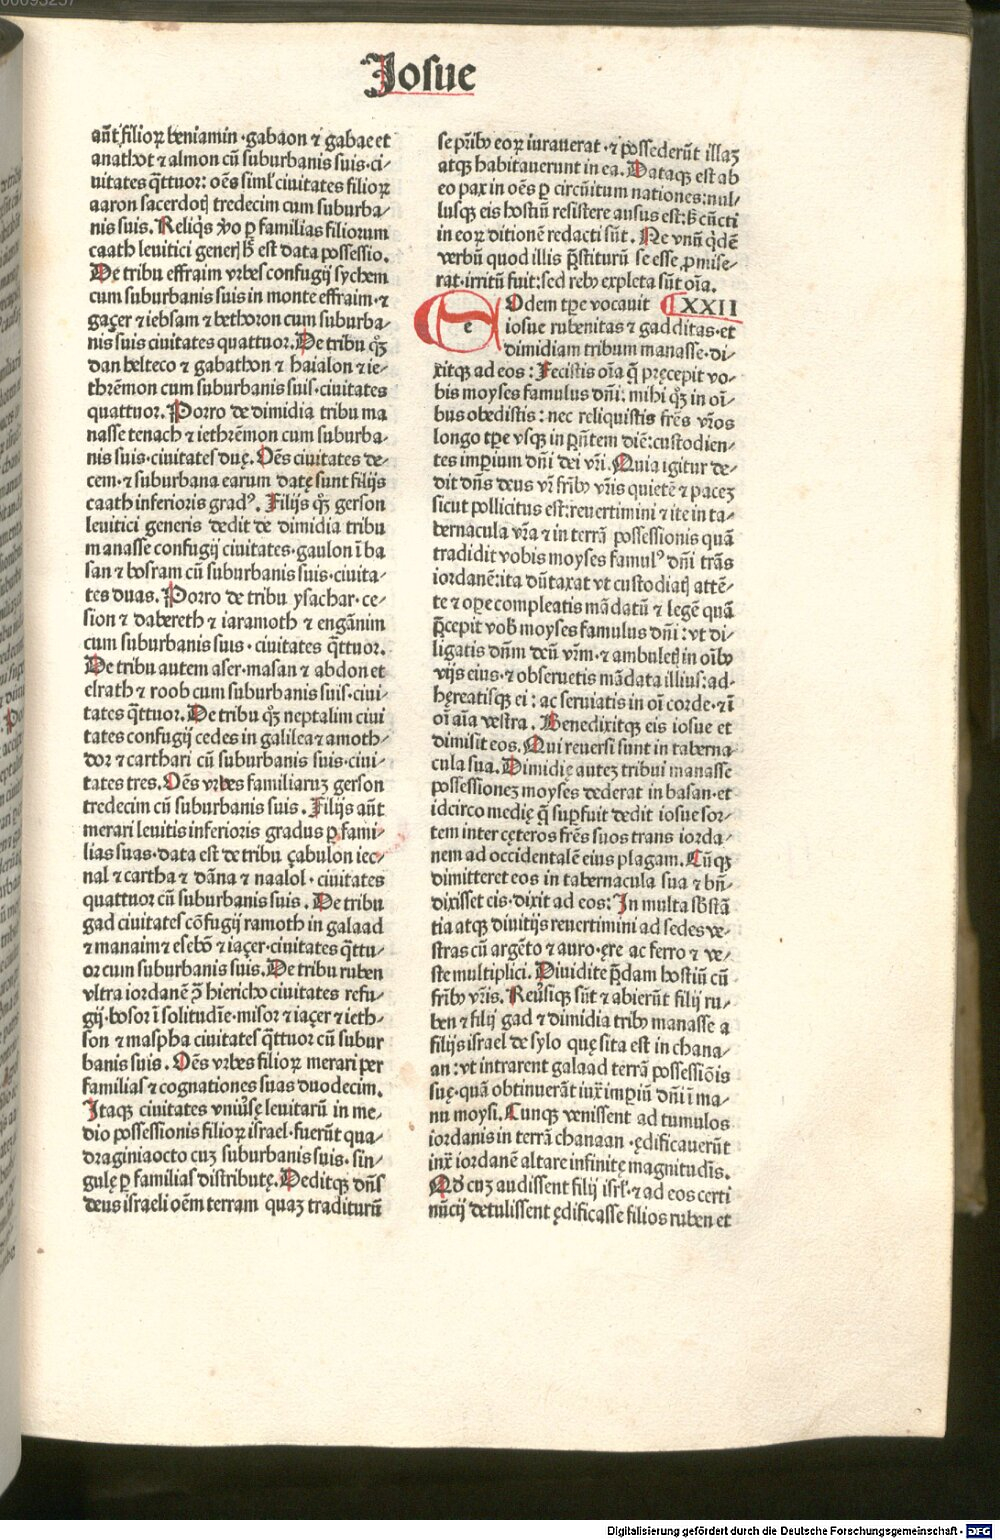 00093257
Josue
aūt filioꝝ beniamin ·gabaon ⁊ gabae et
anathot ⁊ almon cū suburbanis suis·ci⸗
uitates q̄ttuor: oēs simĺ ciuitates filioꝝ
aaron sacerdotꝭ tredecim cum suburba⸗
nis suis. Reliq̇s ꝟo ꝑ familias filiorum
caath leuitici generꝭ h̄ est data possessio.
De tribu effraim vrbes confugij sychem
cum suburbanis suis in monte effraim·⁊
gaçer ⁊ iebsam ⁊ bethoron cum suburba⸗
nis suis ciuitates quattuor. De tribu qꝫ̄
dan belteco ⁊ gabathon ⁊ haialon ⁊ ie⸗
thrēmon cum suburbanis suis·ciuitates
quattuor. Porro de dimidia tribu ma
nasse tenach ⁊ iethrēmon cum suburba⸗
nis suis·ciuitates duę. Oēs ciuitates de⸗
cem·⁊ suburbana earum datę sunt filijs
caath inferioris gradꝰ. Filijs qꝫ̄ gerson
leuitici generis dedit de dimidia tribu
manasse confugij ciuitates·gaulon ī ba
san ⁊ bosram cū suburbanis suis·ciuita⸗
tes duas. Porro de tribu ysachar·ce⸗
sion ⁊ dabereth ⁊ iaramoth ⁊ engānim
cum suburbanis suis · ciuitates q̄ttuor.
De tribu autem aser·masan ⁊ abdon et
elrath ⁊ roob cum suburbanis suis·ciui⸗
tates q̄ttuor. De tribu qꝫ̄ neptalim ciui
tates confugij cedes in galilea ⁊ amoth⸗
dor ⁊ carthari cū suburbanis suis·ciui⸗
tates tres. Oēs vrbes familiaruꝫ gerson
tredecim cū suburbanis suis. Filijs aūt
merari leuitis inferioris gradus ꝑ fami⸗
lias suas·data est de tribu çabulon iec⸗
nal ⁊ cartha ⁊ dāna ⁊ naalol · ciuitates
quattuor cū suburbanis suis. De tribu
gad ciuitates cōfugij ramoth in galaad
⁊ manaim ⁊ esebō ⁊ iaçer·ciuitates q̄ttu⸗
or cum suburbanis suis. De tribu ruben
vltra iordanē ↄ̄ hiericho ciuitates refu⸗
gij·bosor ī solitudīe·misor ⁊ iaçer ⁊ ieth⸗
son ⁊ maspha ciuitates q̄ttuor cū subur
banis suis. Oēs vrbes filioꝝ merari per
familias ⁊ cognationes suas duodecim.
Itaqꝫ ciuitates vniu̾sę leuitarū in me⸗
dio possessionis filioꝝ israel·fuerūt qua⸗
draginiaocto cuꝫ suburbanis suis·sin⸗
gulę ꝑ familias distributę. Deditqꝫ dn̄s
deus israeli oēm terram quaꝫ traditurū
se pr̄ibꝰ eoꝝ iurauerat ·⁊ possederūt illaꝫ
atqꝫ habitauerunt in ea. Dataqꝫ est ab
eo pax in oēs ꝑ circūitum nationes:nul⸗
lusqꝫ eis hostiū resistere ausus est:s̄ cūcti
in eoꝝ ditionē redacti sūt. Ne vnū q̇dē
verbū quod illis p̄stiturū se esse ꝓmise⸗
rat·irritū fuit:sed rebꝰ expleta sūt oīa.
eOdem tp̄e vocauit XXII
iosue rubenitas ⁊ gadditas·et
dimidiam tribum manasse·di⸗
xitqꝫ ad eos: Fecistis oīa q̄ pręcepit vo⸗
bis moyses famulus dn̄i: mihi qꝫ̄ in oī⸗
bus obedistis: nec reliquistis fr̄es vr̄os
longo tp̄e vsqꝫ in pn̄tem diē:custodien⸗
tes imꝑium dn̄i dei vr̄i. Quia igitur de⸗
dit dn̄s deus vr̄ fr̄ibꝰ vr̄is quietē ⁊ paceꝫ
sicut pollicitus est:reuertimini ⁊ ite in ta⸗
bernacula vr̄a ⁊ in terrā possessionis quā
tradidit vobis moyses famulꝰ dn̄i trās
iordanē:ita dūtaxat vt custodiatꝭ attē⸗
te ⁊ oꝑe compleatis mādatū ⁊ legē quā
p̄cepit vob̄ moyses famulus dn̄i: vt di⸗
ligatis dn̄m deū vr̄m·⁊ ambuletꝭ in oībꝰ
vijs eius·⁊ obseruetis mādata illius:ad⸗
hęreatisqꝫ ei: ac seruiatis in oī corde·⁊ ī
oī aīa vestra. Benedixitqꝫ eis iosue et
dimisit eos. Qui reuersi sunt in taberna⸗
cula sua. Dimidię auteꝫ tribui manasse
possessioneꝫ moyses dederat in basan·et
idcirco medię q̄ suꝑfuit dedit iosue sor⸗
tem inter cęteros fr̄es suos trans iorda⸗
nem ad occidentalē eius plagam. Cūqꝫ
dimitteret eos in tabernacula sua ⁊ bn̄⸗
dixisset eis·dixit ad eos: In multa sb̄stā
tia atqꝫ diuitijs reuertimini ad sedes ve⸗
stras cū argēto ⁊ auro·ęre ac ferro ⁊ ve⸗
ste multiplici. Diuidite p̄dam hostiū cū
fr̄ibꝰ vr̄is. Reu̾siqꝫ sūt ⁊ abierūt filij ru⸗
ben ⁊ filij gad ⁊ dimidia tribꝰ manasse a
filijs israel de sylo quę sita est in chana⸗
an: vt intrarent galaad terrā possessiōis
suę·quā obtinuerāt iux̄ imꝑiū dn̄i ī ma⸗
nu moysi. Cunqꝫ venissent ad tumulos
iordanis in terrā chanaan ·ędificauerūt
inx̄ iordanē altare infinitę magnitudīs.
Qd̓ cuꝫ audissent filij isrl̄·⁊ ad eos certi
nūcij detulissent ędificasse filios ruben et
Digitalisierung gefördert durch die Deutsche Forschungsgemeinschaft - DFG